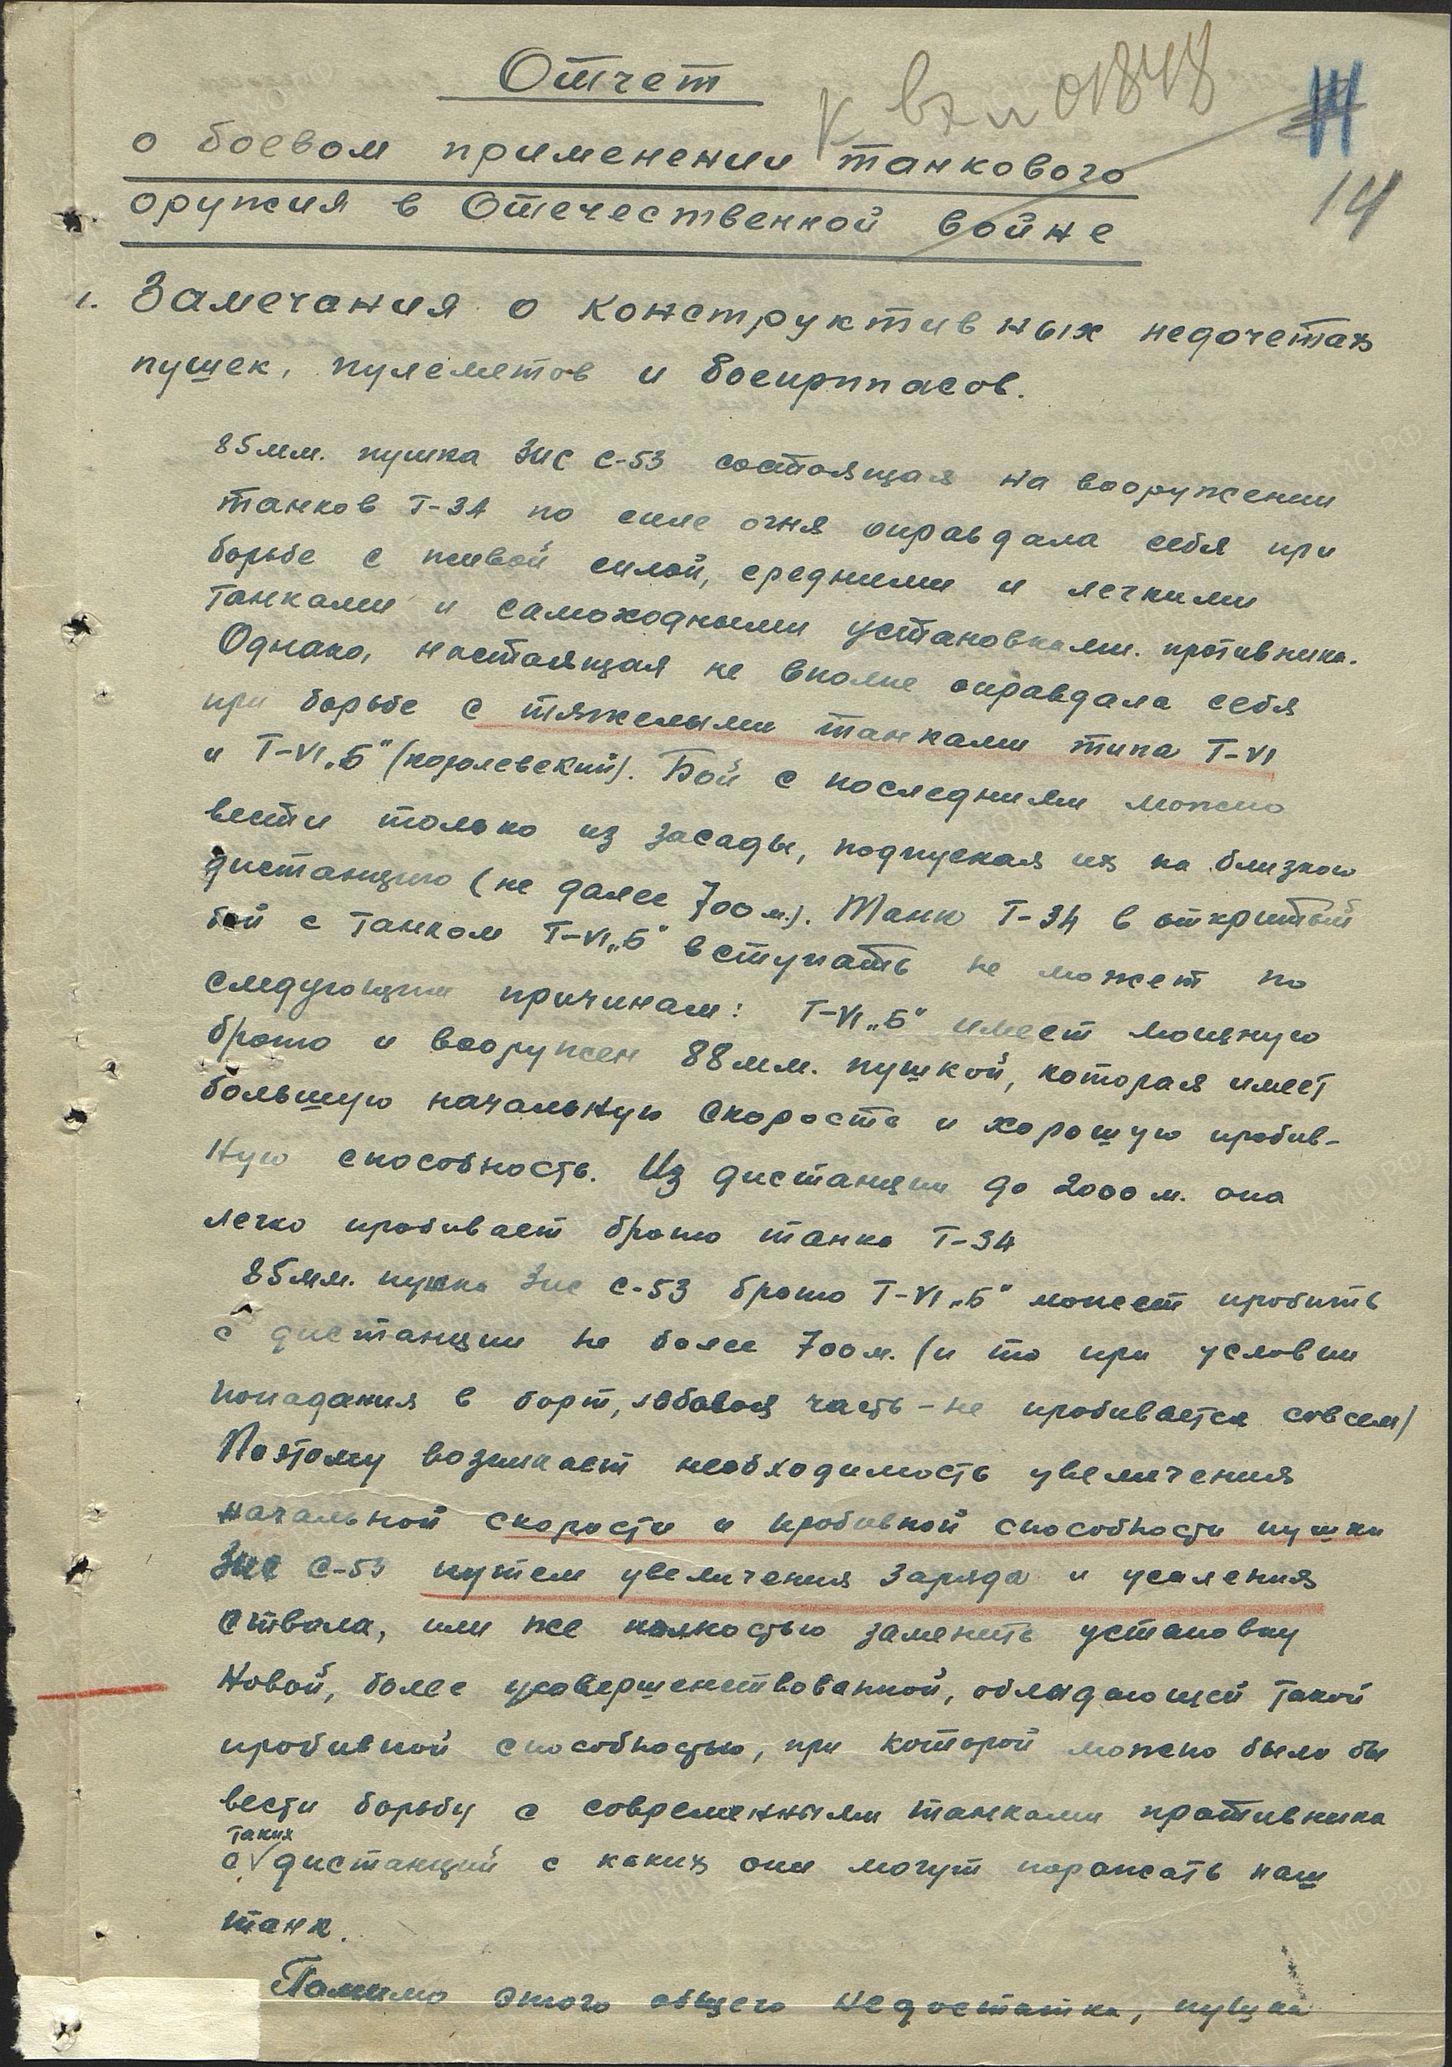 Отчет
К вх № 01848
14
14
о боевом применении танкового
оружия в Отечественной войне
1. Замечания о конструктивных недочетах
пушек, пулеметов и боеприпасов.
85мм. пушка Зис С-53 состоящая на вооружении
танков Т-34 по силе огня оправдала себя при
борьбе с живой силой, средними и легкими
танками и самоходными установками. противника.
Однако, настоящая не вполне оправдала себя
при борьбе с тяжелыми танками типа Т-VI
и Т-VI„Б" (королевский). Бой с последними можно
вести только из засады, подпуская их на близкую
дистанцию (не далее 700м.). Танк Т-34 в открытый
бой с танком Т-VI„Б" вступать не может по
следующим причинам: Т-VI„Б" имеет мощную
броню и вооружен 88мм. пушкой, которая имеет
большую начальную скорость и хорошую пробив-
ную способность. Из дистанции до 2000м. она
легко пробивает броню танка Т-34
85мм. пушка Зис С-53 броню Т-VI„Б" может пробить
с дистанции не более 700м. (и то при условии
попадания в борт, лобовая часть - не пробивается совсем)
Поэтому возникает необходимость увеличения
начальной скорости и пробивной способности пушки
Зис С-53 путем увеличения заряда и усиления
ствола, или же полностью заменить установку
новой, более усовершенствованной, обладающей такой
пробивной способностью, при которой можно было бы
вести борьбу с современными танками противника
таких
с дистанций с каких они могут поражать наш
танк.
Помимо этого общего недостатка, пушка